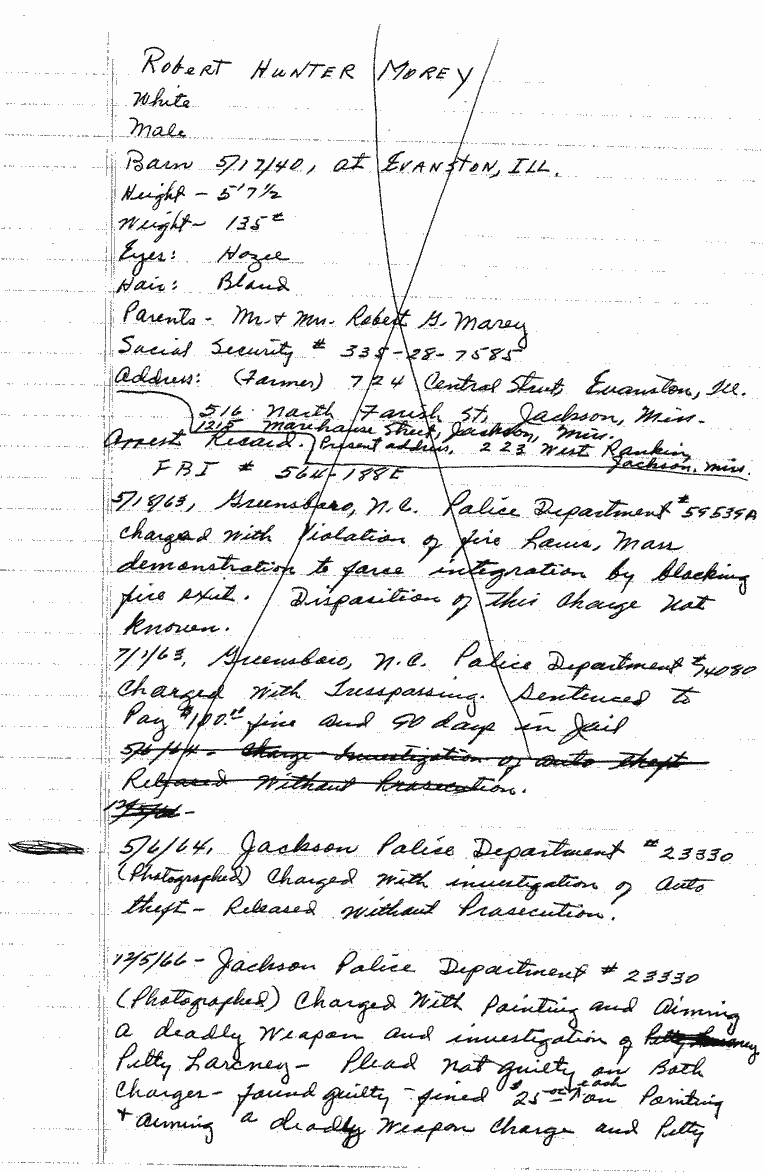 Robert HUNTER MOREY
White
Male
Born 5/17/40, at EVANSTON, ILL.
Height - 5'7½
Weight - 135#
Eyes: Hazel
Hair: Blond
Parents - Mr. & Mrs. Robert G. Morey
Social Security # 335-28-7585
Address: (Former) 724 Central Street, Evanston, Ill.
516 North Farish St, Jackson, Miss.
1215 Morehouse Street, Jackson, Miss.
Arrest Record. Present address, 223 West Rankin
Jackson, Miss.
FBI # 564-188E
5/18/63, Greensboro, N.C. Police Department #59539A
charged with Violation of fire Laws, Mass
demonstration to force integration by blocking
fire exit. Disposition of this charge not
known.
7/1/63, Greensboro, N.C. Police Department #74080
Charged with Tresspassing. Sentenced to
Pay $100.00 fine and 90 days in Jail
5/6/64 - Charge Investigation of auto theft
Released Without Prosecution.
12/5/66 -
5/6/64, Jackson Police Department # 23330
(Photographed) Charged with investigation of Auto
theft - Released without Prosecution.
12/5/66 - Jackson Police Department # 23330
(Photographed) Charged With Pointing and Aiming
a deadly Weapon and investigation of Petty Larceny
Petty Larceny - Plead not guilty on Both
Charges - found guilty - fined $25.00 each on Pointing
+ aiming a deadly Weapon Charge and Petty